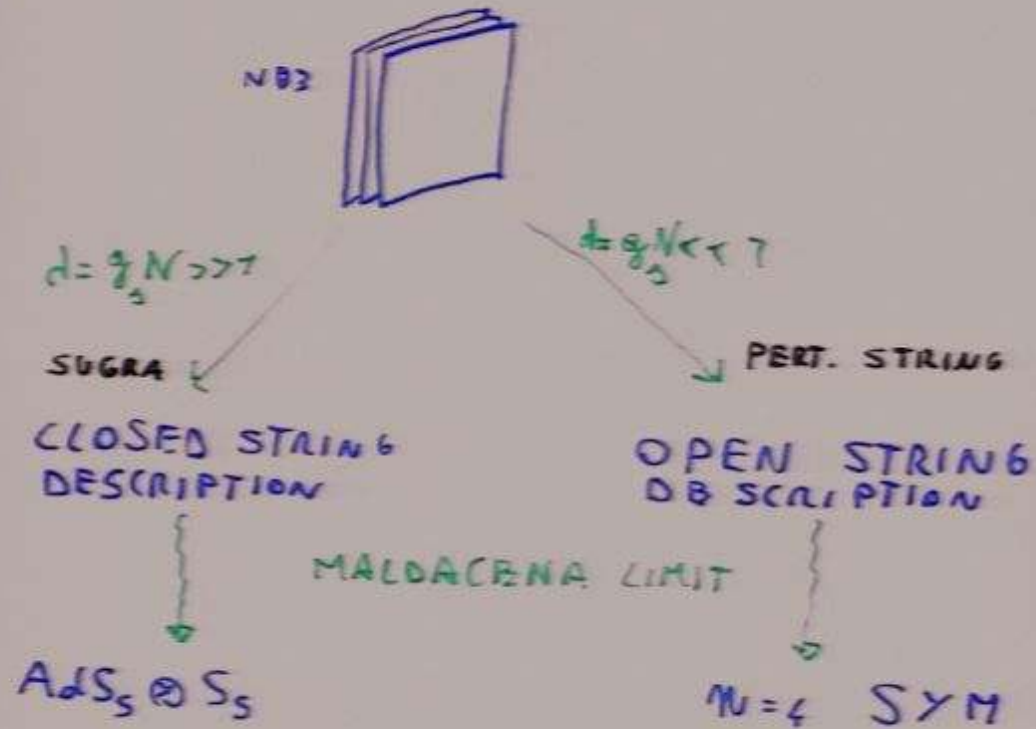 N D3
λ = g_s N >> 1
λ = g_s N << 1
SUGRA
PERT. STRING
CLOSED STRING
DESCRIPTION
OPEN STRING
DESCRIPTION
MALDACENA LIMIT
AdS_5 ⊗ S_5
N=4 SYM